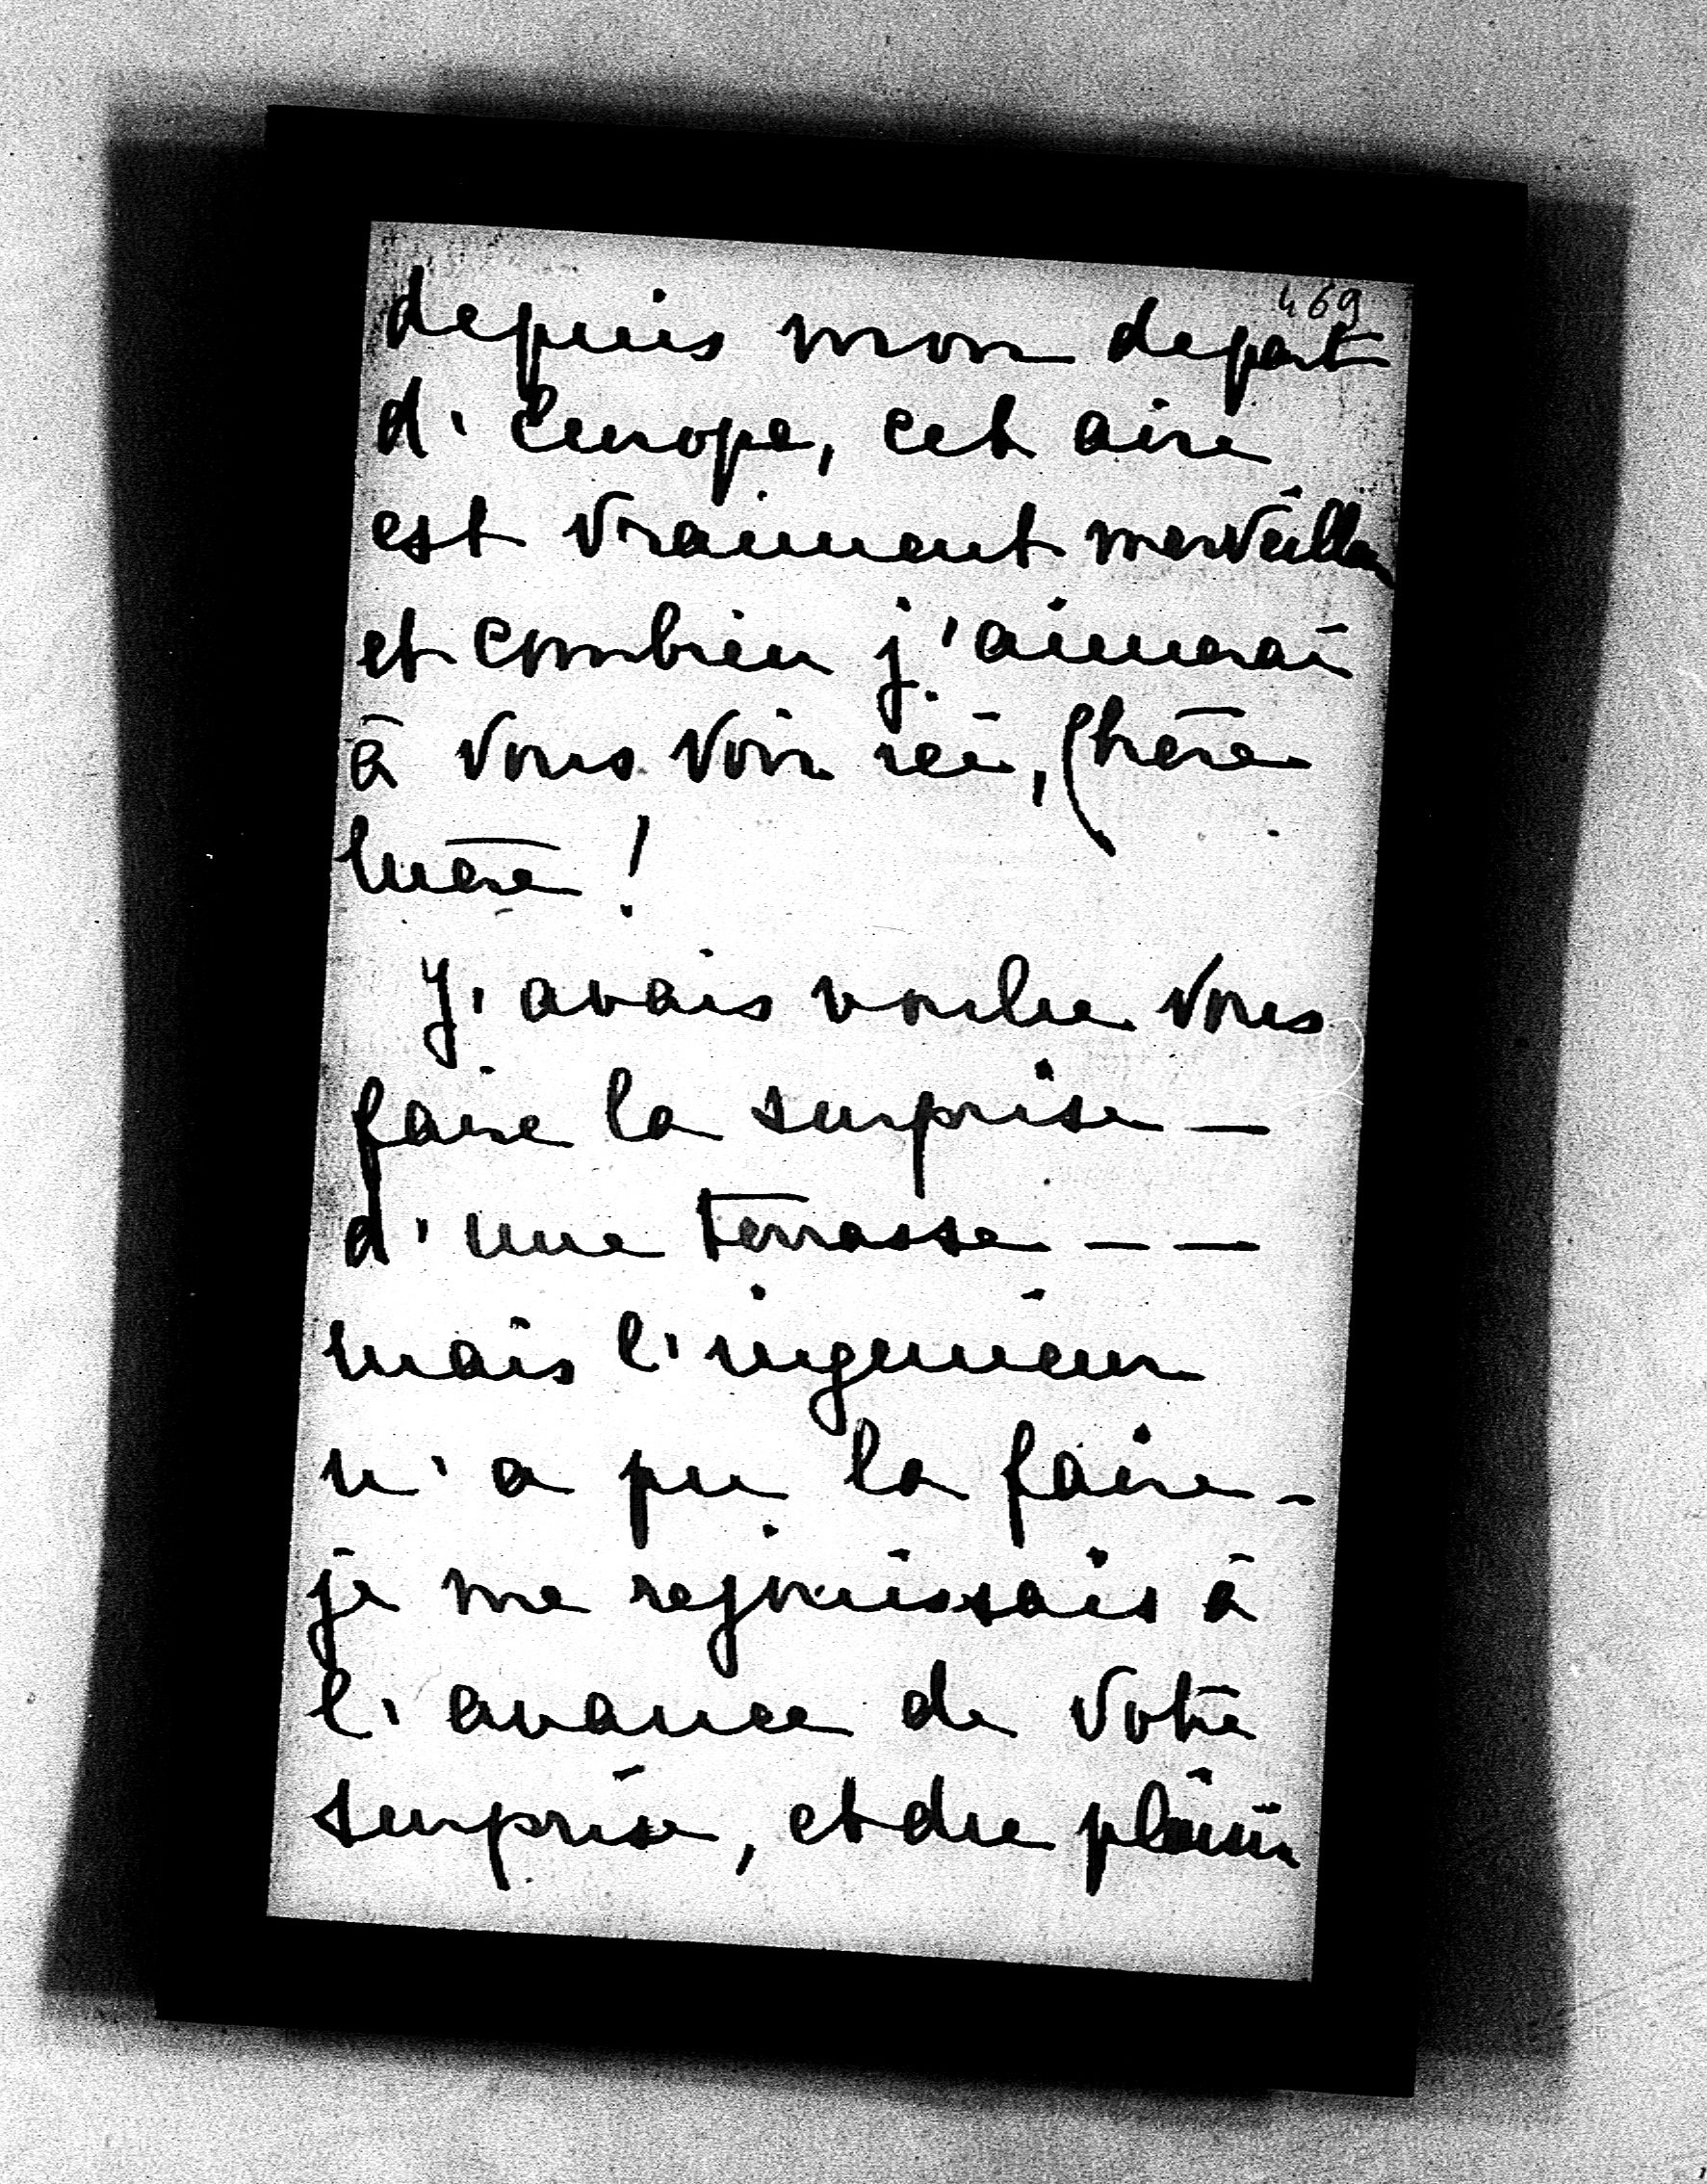 469
depuis mon depart
d'Europe, cet aire
est vraiment merveilleux
et combien j'aimerai
à vous voir ici, Chère
mère !
J'avais voulu vous
faire la surprise —
d'une terrasse — —
mais l'ingenieur
n'a pu la faire -
je me rejouissais à
l'avance de votre
surprise, et du plaisir